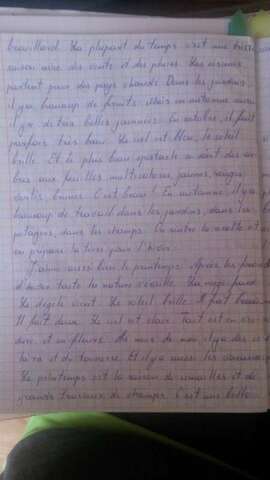 brouillard. La plupart du temps c'est une triste
saison avec des vents et des pluies. Les oiseaux
partent pour des pays chauds. Dans les jardins
il y a beaucoup de fruits. Mais en automne aussi
il y a de très belles journées. En octobre, il fait
parfois très beau. Le ciel est bleu, le soleil
brille. Et le plus beau spectacle ce sont des ar-
bres aux feuilles multicolores, jaunes, rouges,
brunes. C'est beau! En automne, il y a
beaucoup de travail dans les jardins, dans les
potagers, dans les champs. On rentre la récolte et on
prépare la terre pour l'hiver.
J'aime aussi bien le printemps. Après les
d'hiver toute la nature s'éveille. La neige fond.
Le dégel vient. Le soleil brille. Il fait beau.
Il fait doux. Le ciel est clair. Tout est en
et en fleurs. Au mois de mai il y a des
et du tonnerre. Et il y a aussi les
Le printemps est la saison de semailles et de
grands travaux de champs. C'est une belle